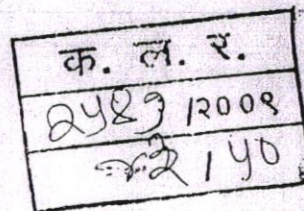 क. ल. र.
२५४७ /२००९
/ ५०